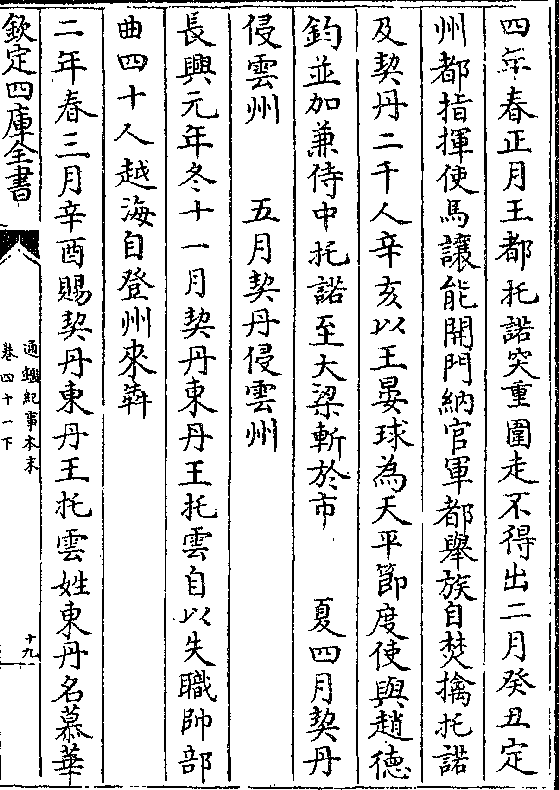 四年春正月王都托諾突重圍走不得出二月癸丑定
州都指揮使馬讓能開門納官軍都舉族自焚擒托諾
及契丹二千人辛亥以王晏球為天平節度使與趙徳
鈞並加兼侍中托諾至大梁斬於市 夏四月契丹
侵雲州 五月契丹侵雲州
長興元年冬十一月契丹東丹王托雲自以失職帥部
曲四十人越海自登州來犇
二年春三月辛酉賜契丹東丹王托雲姓東丹名慕華
欽定四庫全書
通鑑紀事本末
卷四十一下
十九